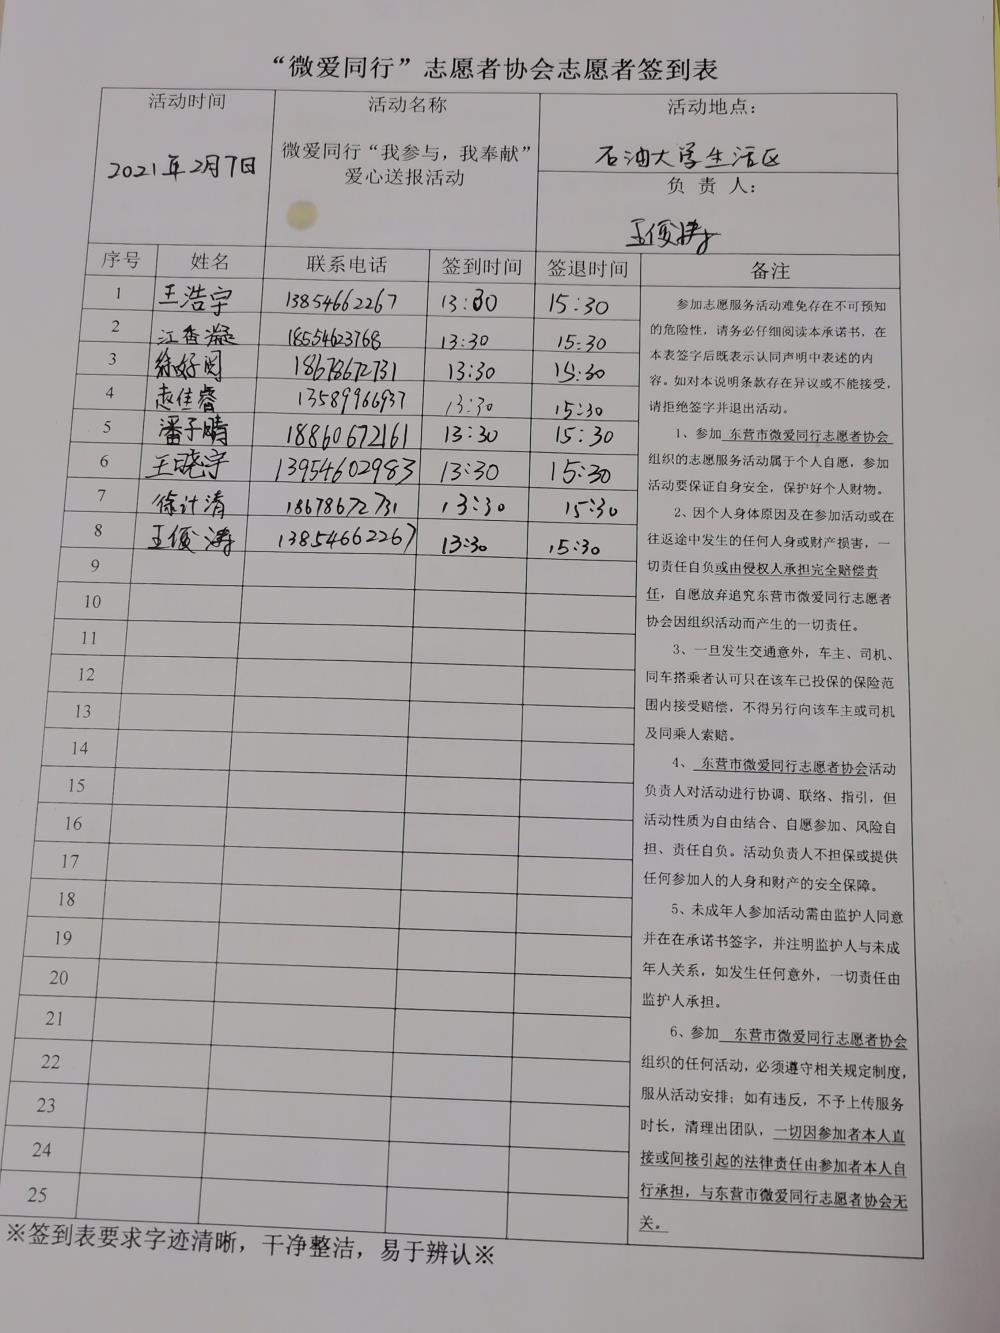 “微爱同行”志愿者协会志愿者签到表
活动时间
活动名称
活动地点：
2021年2月7日
微爱同行“我参与，我奉献”
爱心送报活动
石油大学生活区
负 责 人：
王俊涛
序号 姓名 联系电话 签到时间 签退时间 备注
1 王浩宇 13854662267 13:30 15:30
2 江香凝 18554623768 13:30 15:30
3 徐好闵 18678672731 13:30 15:30
4 赵佳睿 13589966937 13:30 15:30
5 潘子晴 18860672161 13:30 15:30
6 王晓宇 13954602983 13:30 15:30
7 徐计清 18678672731 13:30 15:30
8 王俊涛 13854662267 13:30 15:30
9
10
11
12
13
14
15
16
17
18
19
20
21
22
23
24
25
参加志愿服务活动难免存在不可预知
的危险性，请务必仔细阅读本承诺书，在
本表签字后既表示认同声明中表述的内
容。如对本说明条款存在异议或不能接受，
请拒绝签字并退出活动。
1、参加 东营市微爱同行志愿者协会
组织的志愿服务活动属于个人自愿，参加
活动要保证自身安全，保护好个人财物。
2、因个人身体原因及在参加活动或在
往返途中发生的任何人身或财产损害，一
切责任自负或由侵权人承担完全赔偿责
任，自愿放弃追究东营市微爱同行志愿者
协会因组织活动而产生的一切责任。
3、一旦发生交通意外，车主、司机、
同车搭乘者认可只在该车已投保的保险范
围内接受赔偿，不得另行向该车主或司机
及同乘人索赔。
4、 东营市微爱同行志愿者协会活动
负责人对活动进行协调、联络、指引，但
活动性质为自由结合、自愿参加、风险自
担、责任自负。活动负责人不担保或提供
任何参加人的人身和财产的安全保障。
5、未成年人参加活动需由监护人同意
并在在承诺书签字，并注明监护人与未成
年人关系，如发生任何意外，一切责任由
监护人承担。
6、参加 东营市微爱同行志愿者协会
组织的任何活动，必须遵守相关规定制度，
服从活动安排；如有违反，不予上传服务
时长，清理出团队，一切因参加者本人直
接或间接引起的法律责任由参加者本人自
行承担，与东营市微爱同行志愿者协会无
关。
※签到表要求字迹清晰，干净整洁，易于辨认※